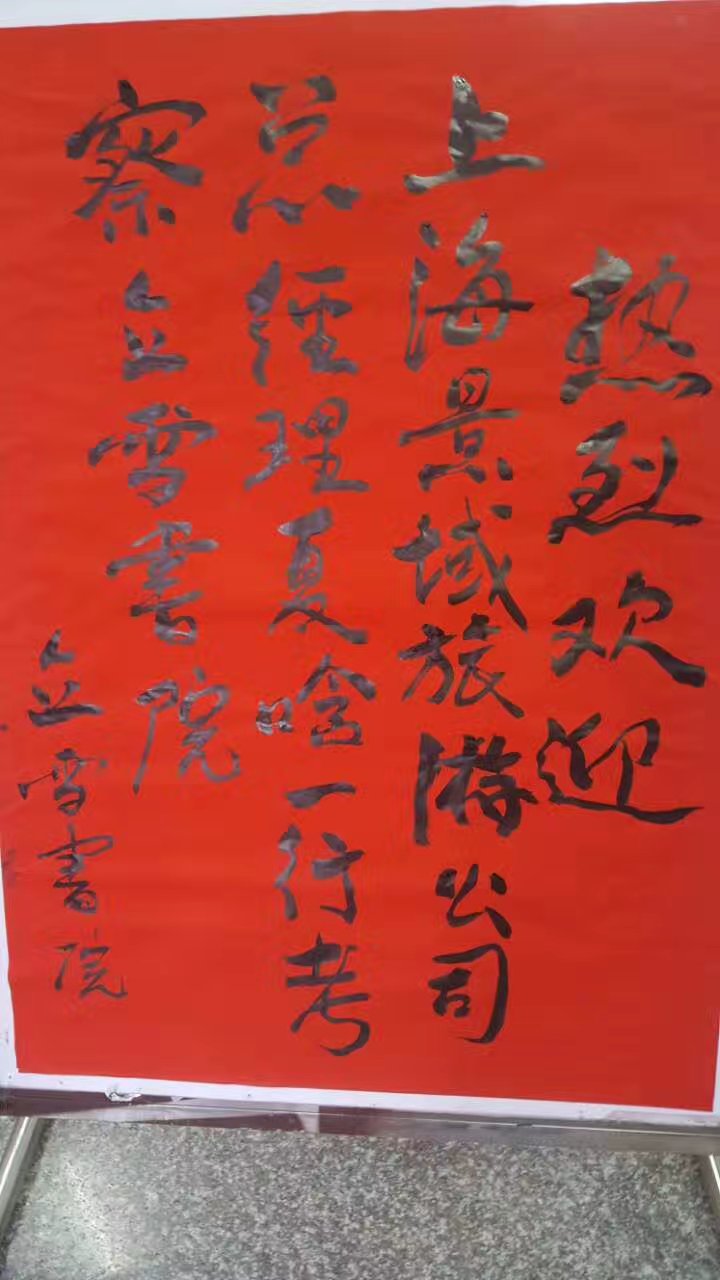 热烈欢迎
上海景域旅游公司
总经理夏晗一行考
察立雪书院
立雪書院